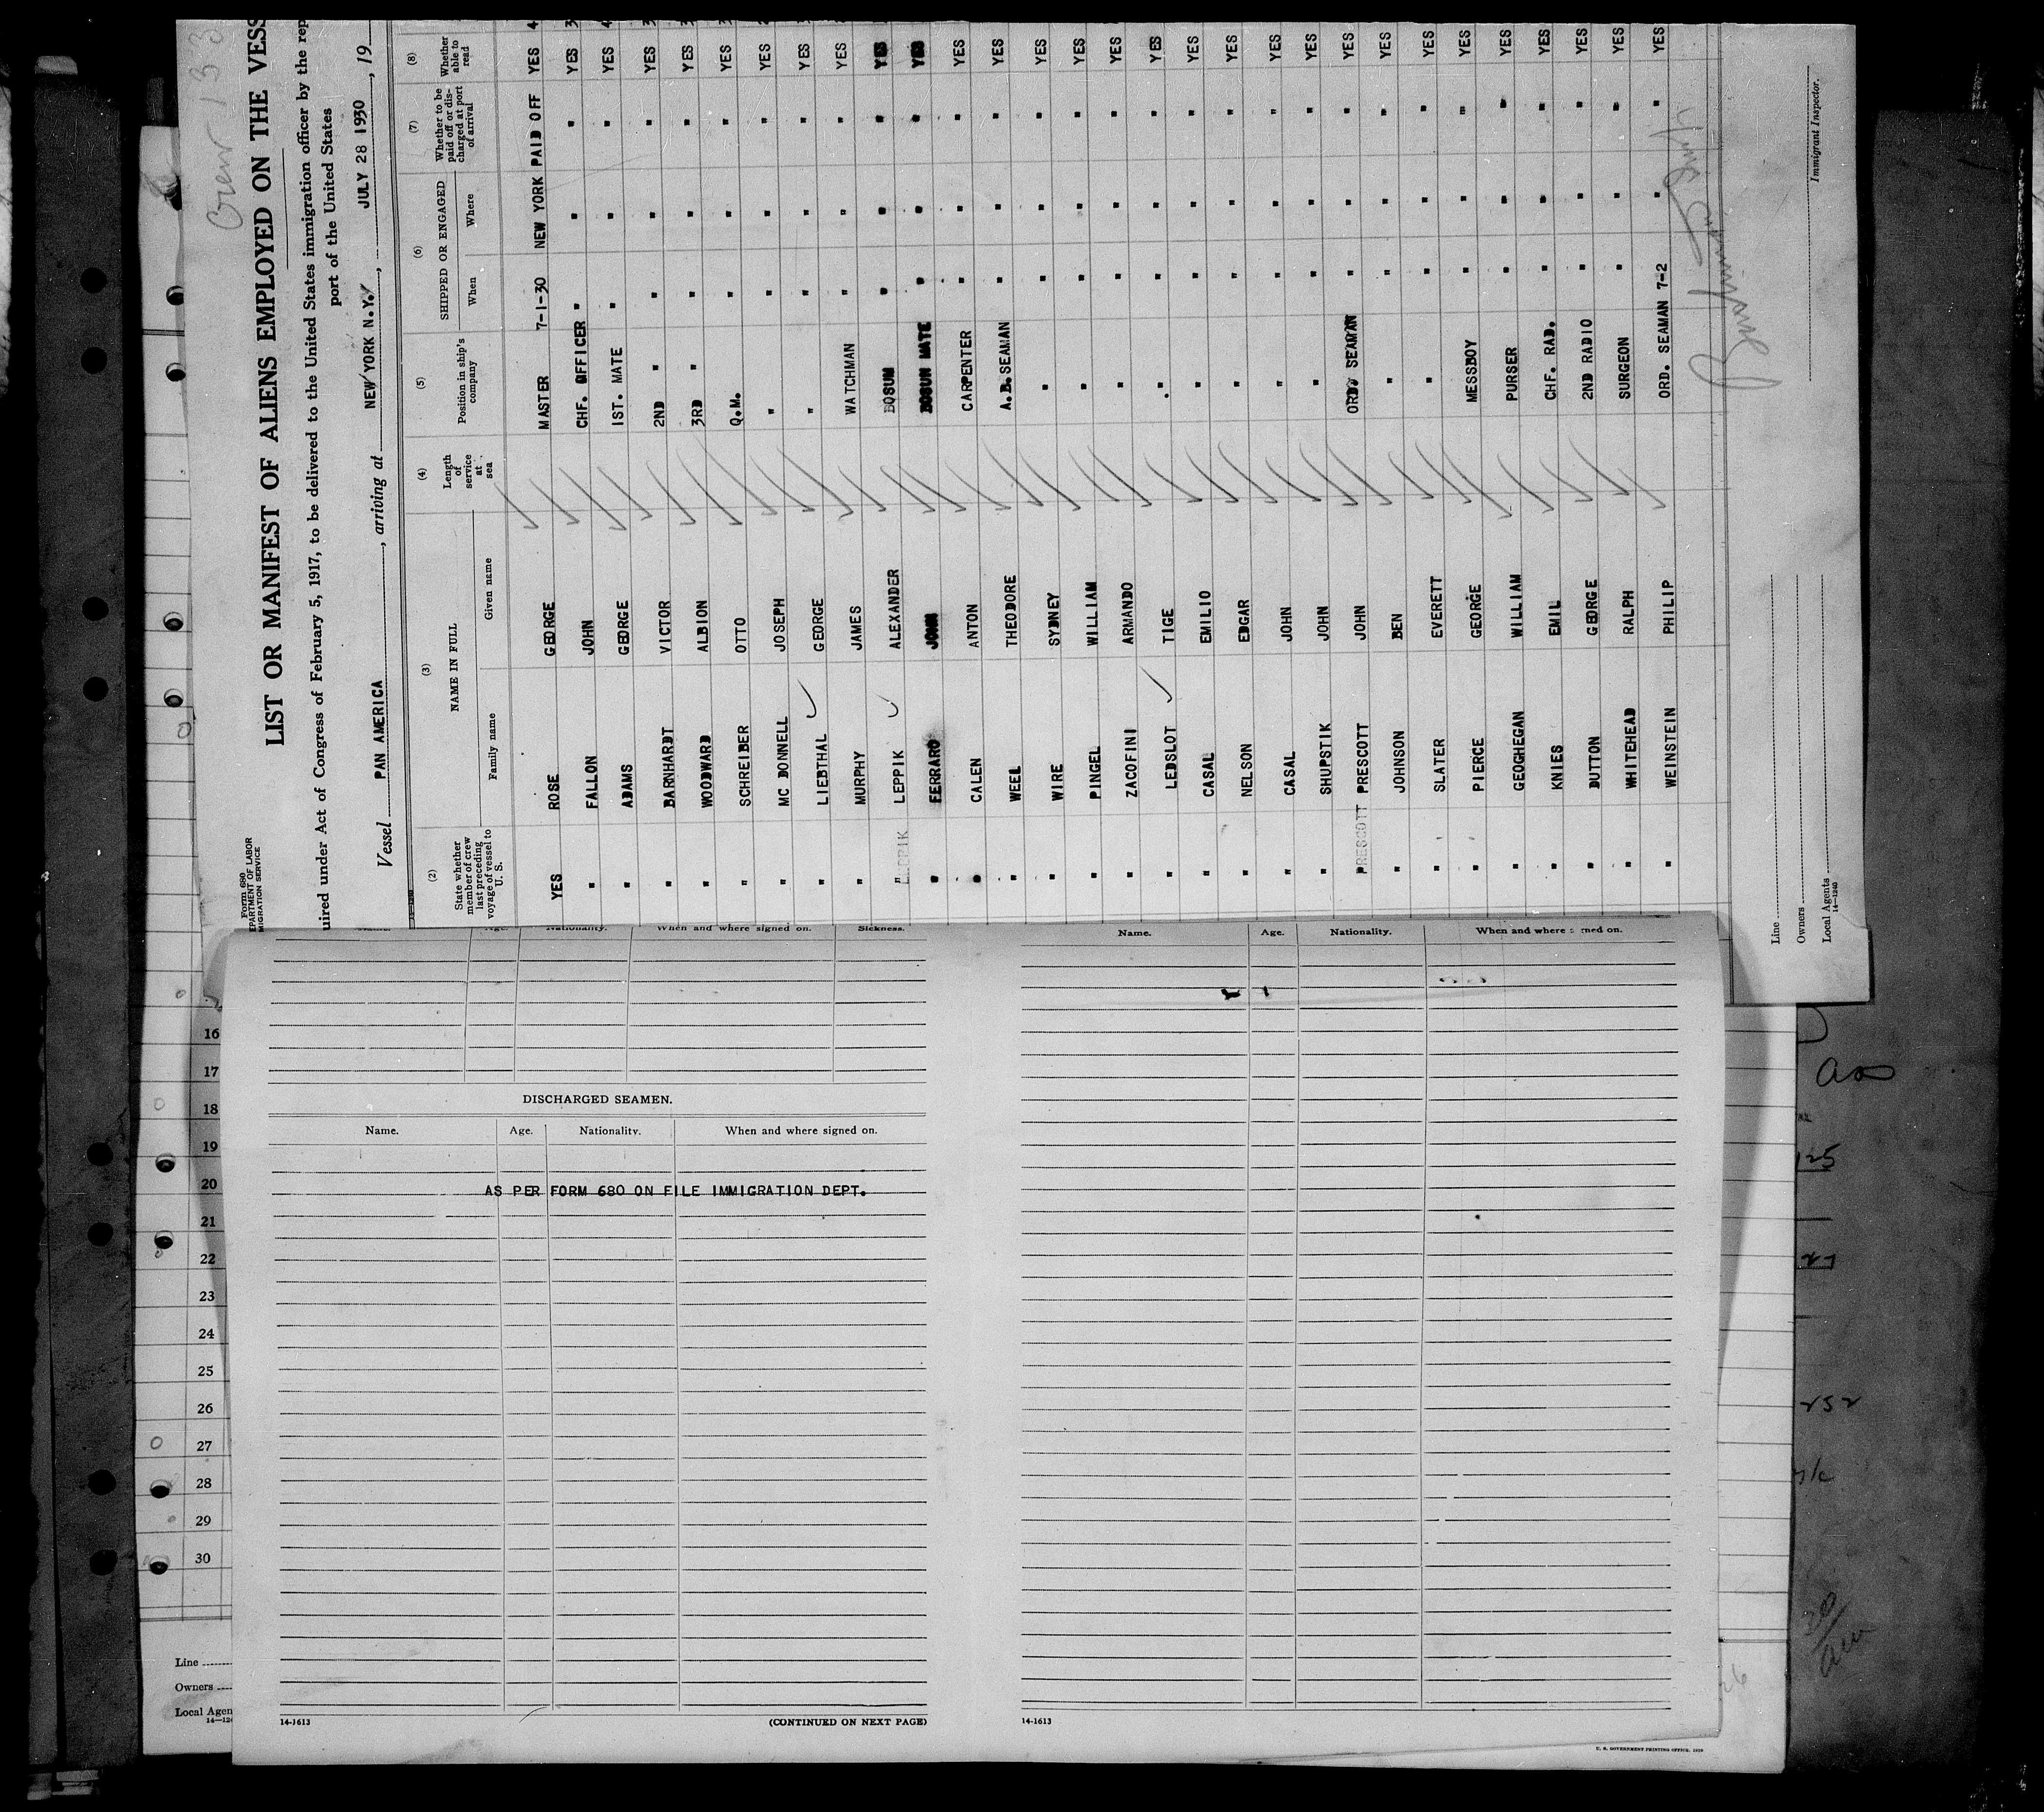 Form 680
EPARTMENT OF LABOR
MIGRATION SERVICE
Crew 133
LIST OR MANIFEST OF ALIENS EMPLOYED ON THE VESS
uired under Act of Congress of February 5, 1917, to be delivered to the United States immigration officer by the rep
port of the United States
Vessel PAN AMERICA, arriving at NEW YORK N.Y., JULY 28 1930, 19
(2) (3) (4) (5) (6) (7) (8)
State whether member of crew last preceding voyage of vessel to U. S. NAME IN FULL Family name Given name Length of service at sea Position in ship's company SHIPPED OR ENGAGED When Where Whether to be paid off or discharged at port of arrival Whether able to read
YES ROSE GEORGE MASTER 7-1-30 NEW YORK PAID OFF YES 4
" FALLON JOHN CHF. OFFICER " " " YES 3
" ADAMS GEORGE 1ST. MATE " " " YES 4
" BARNHARDT VICTOR 2ND " " " " YES
" WOODWARD ALBION 3RD " " " " YES
" SCHREIBER OTTO Q.M. " " " YES
" MC DONNELL JOSEPH " " " " YES
" LIEBTHAL GEORGE " " " " YES
" MURPHY JAMES WATCHMAN " " " YES
" LEPPIK LEPPIK ALEXANDER BOSUN " " " YES
" FERRARO JOHN BOSUN MATE " " " YES
" CALEN ANTON CARPENTER " " " YES
" WEEL THEODORE A.B.SEAMAN " " " YES
" WIRE SYDNEY " " " " YES
" PINGEL WILLIAM " " " " YES
" ZACOFINI ARMANDO " " " " YES
" LEDSLOT TIGE " " " " YES
" CASAL EMILIO " " " " YES
" NELSON EDGAR " " " " YES
" CASAL JOHN " " " " YES
" SHUPSTIK JOHN " " " " YES
PRESCOTT PRESCOTT JOHN ORD. SEAMAN " " " YES
" JOHNSON BEN " " " " YES
" SLATER EVERETT " " " " YES
" PIERCE GEORGE MESSBOY " " " YES
" GEOGHEGAN WILLIAM PURSER " " " YES
" KNIES EMIL CHF. RAD. " " " YES
" DUTTON GEORGE 2ND RADIO " " " YES
" WHITEHEAD RALPH SURGEON " " " YES
" WEINSTEIN PHILIP ORD. SEAMAN 7-2 " " YES
Line
Owners
Local Agents
14-1240
Immigrant Inspector.
Name. Age. Nationality. When and where signed on. Sickness.
DISCHARGED SEAMEN.
Name. Age. Nationality. When and where signed on.
AS PER FORM 680 ON FILE IMMIGRATION DEPT.
14-1613 (CONTINUED ON NEXT PAGE)
Name. Age. Nationality. When and where signed on.
14-1613
U. S. GOVERNMENT PRINTING OFFICE
16
17
18
19
20
21
22
23
24
25
26
27
28
29
30
Line
Owners
Local Agen
125
252